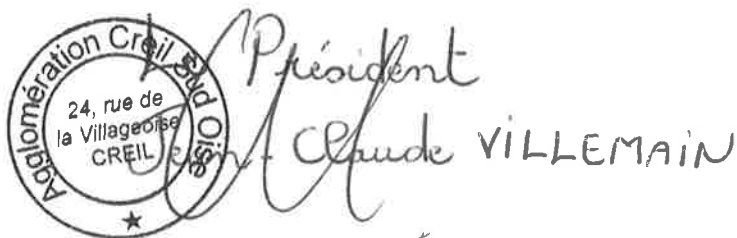 Agglomération Creil Sud Oise
24, rue de
la Villageoise
CREIL
Le Président
Jean-Claude VILLEMAIN